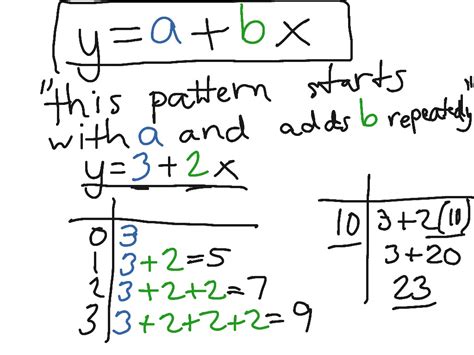 y=a+bx
"this pattern starts
with a and adds b repeatedly"
y=3+2x
0 3
1 3+2=5
2 3+2+2=7
3 3+2+2+2=9
10 3+2(10)
3+20
23